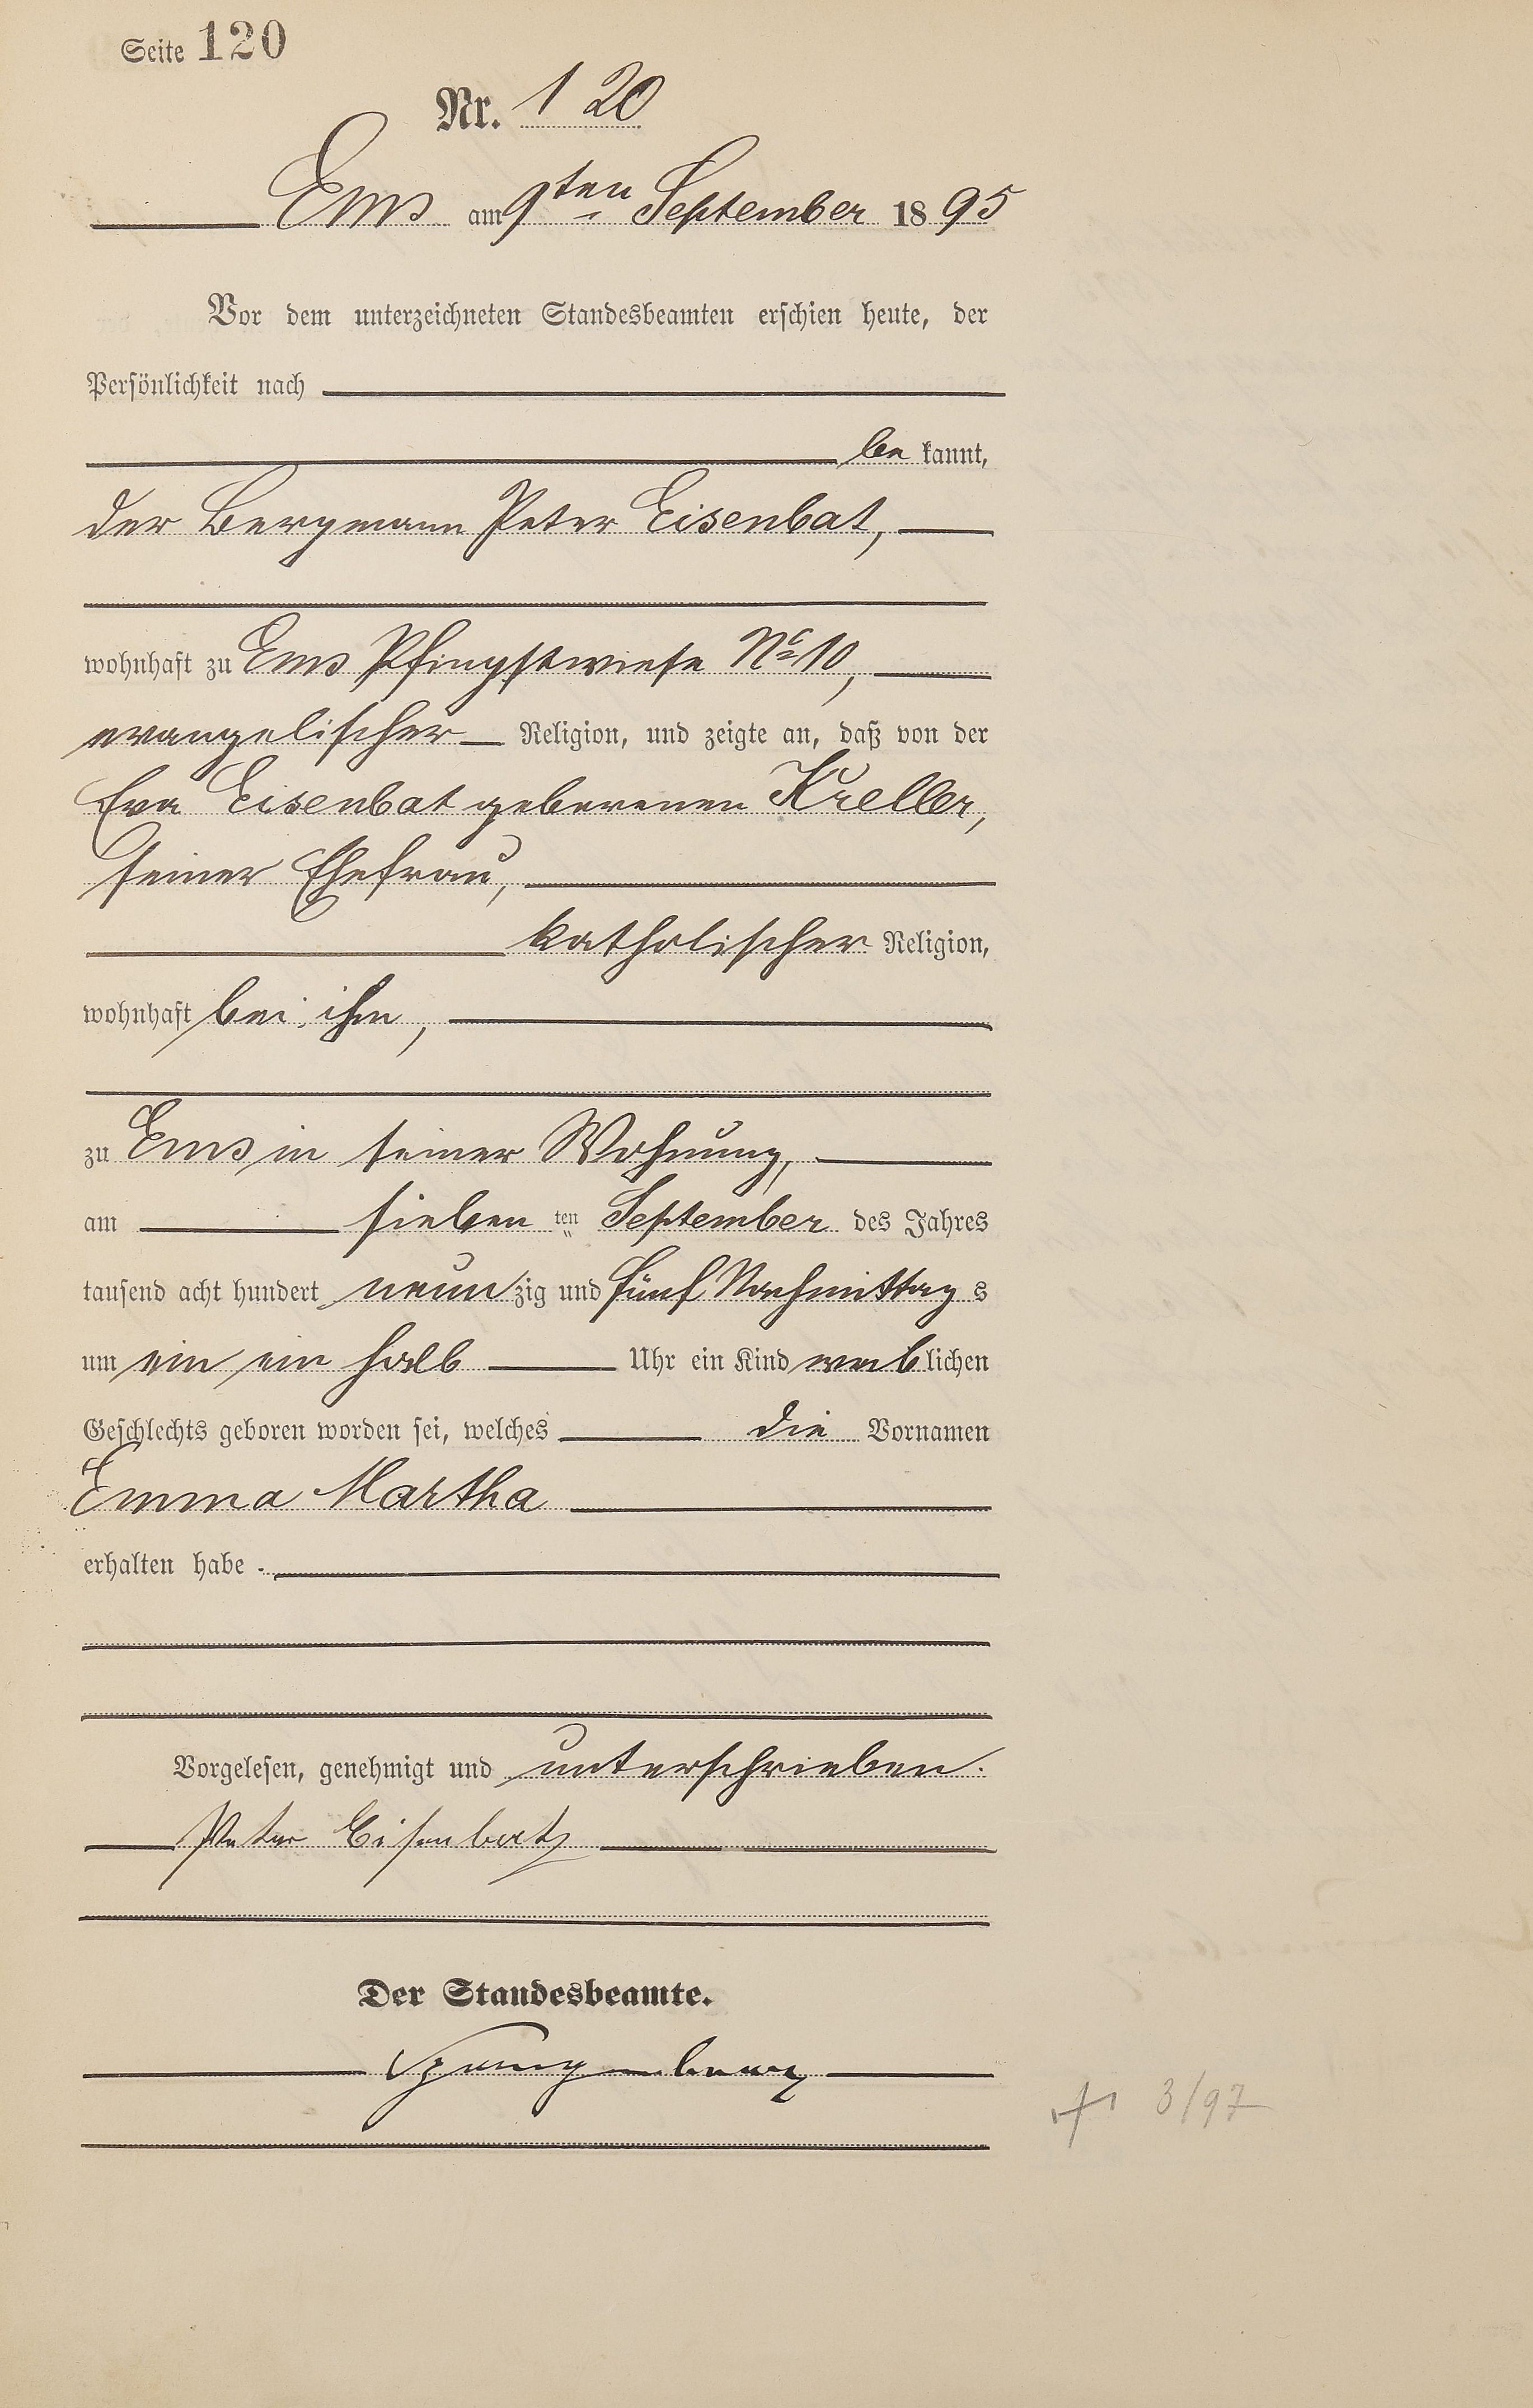 Seite 120
Nr. 120
Ems am 9ten September 1895
Vor dem unterzeichneten Standesbeamten erschien heute, der
Persönlichkeit nach
be kannt,
der Bergmann Peter Eisenbat,
wohnhaft zu Ems Pfingstwiese No 10,
evangelischer Religion, und zeigte an, daß von der
Eva Eisenbat geborenen Kreller,
seiner Ehefrau,
katholischer Religion,
wohnhaft bei ihm,
zu Ems in seiner Wohnung,
am sieben ten September des Jahres
tausend acht hundert neun zig und fünf Nachmittag s
um ein ein halb Uhr ein Kind weib lichen
Geschlechts geboren worden sei, welches die Vornamen
Emma Martha
erhalten habe
Vorgelesen, genehmigt und unterschrieben.
Peter Eisenbatz
Der Standesbeamte.
Spangenberg
3/97